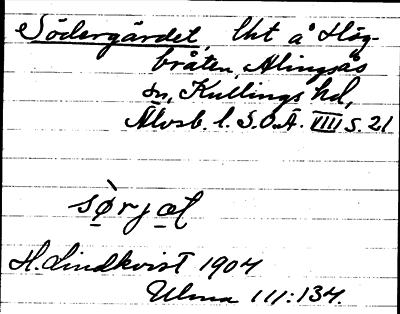 Södergärdet, lht å Hög-
bråten, Alingsås
sn, Kullings hd,
Älvsb. l. S.O.Ä. VIII s. 21
sø̀rjæl
H. Lindkvist 1904
Ulma 111:134.